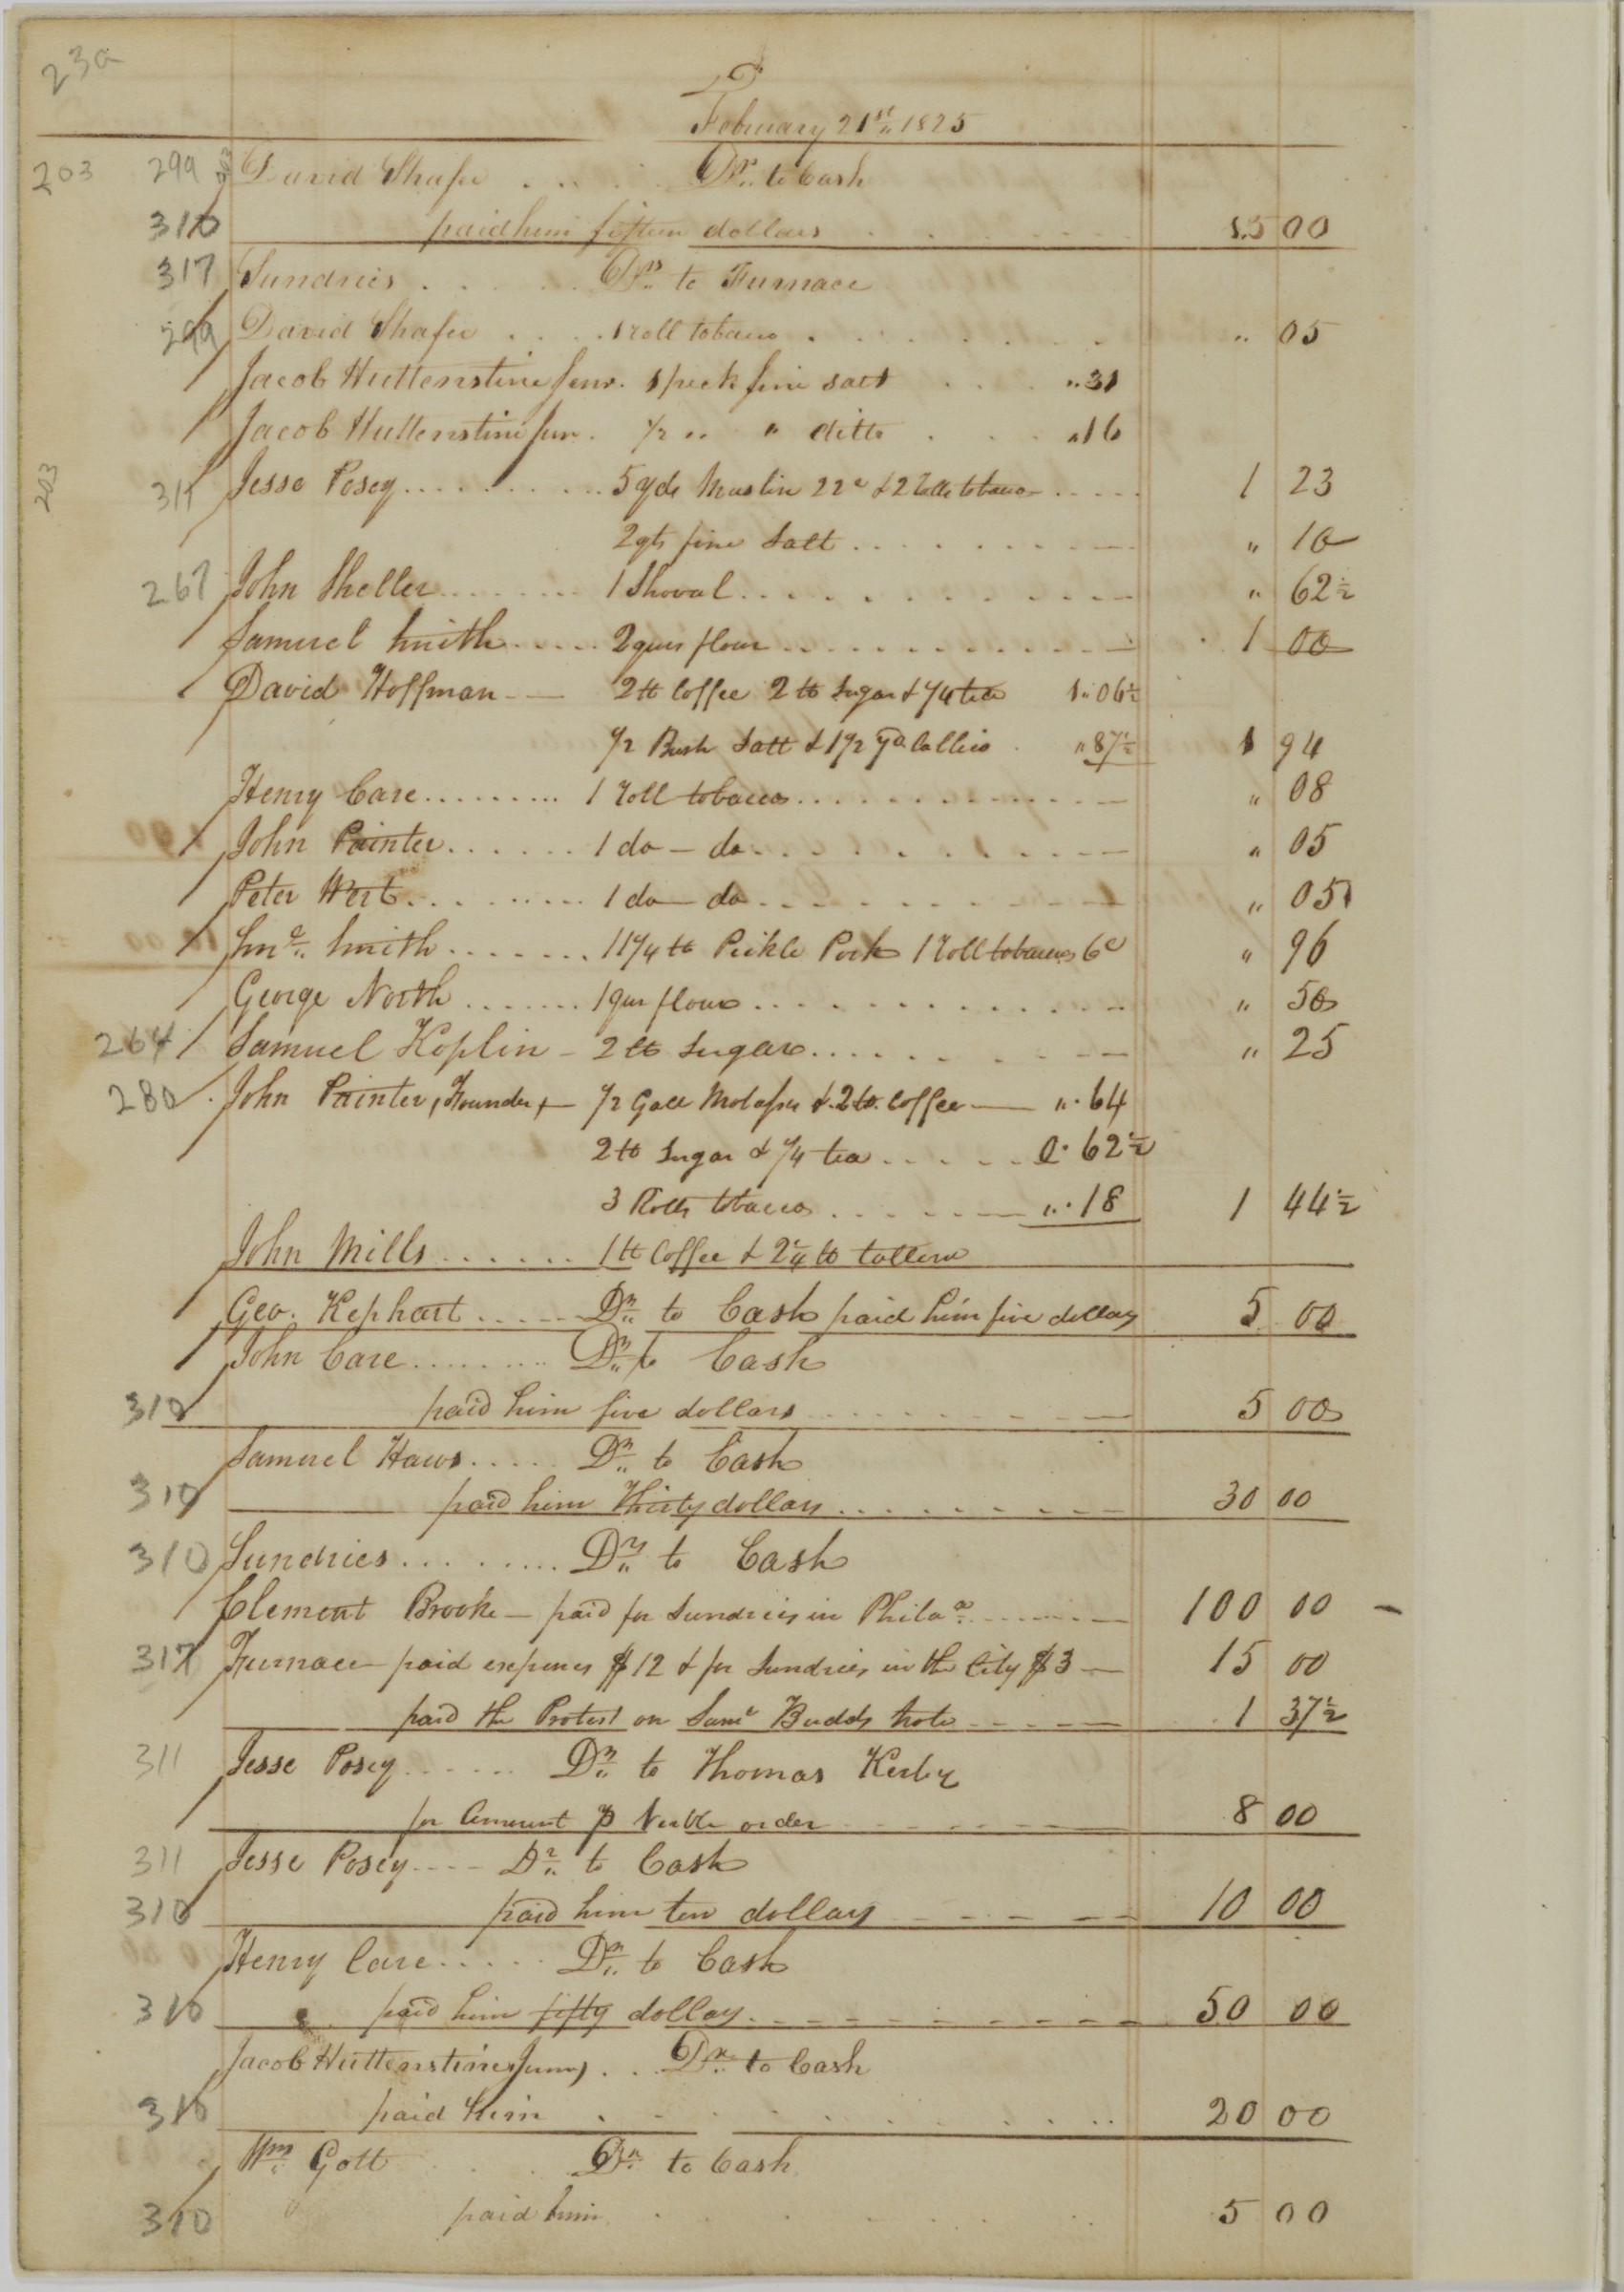 23a
February 21st 1825
203 299 203 David Shafer . . . . Dr. to Cash
310 paid him fifteen dollars . . . . 15 00
317 Sundries . . . . . Drs to Furnace
299 David Shafer . . . . 1 roll tobacco . . . . . " 05
Jacob Huttenstine Senr. 1 peck fine salt . . . . " 31
Jacob Huttenstine Jun. 1/2 " " ditto . . . . " 16
203 311 Jesse Posey . . . . . . 5 yds Muslin 22c & 2 Rolls tobacco . . . . 1 23
2 qts fine Salt . . . . . . " 10
267 John Sheller . . . . . 1 Shoval . . . . . . " 62 1/2
Samuel Smith . . . . 2 qurs flour . . . . . . 1 00
David Hoffman — 2 lb Coffee 2 lb Sugar & 1/4 tea 1 " 06 1/2
1/2 Bush Salt & 1 1/2 yd Callico . " 87 1/2 1 94
Henry Care . . . . . . 1 Roll tobacco . . . . . . " 08
John Painter . . . . . 1 do — do . . . . . . " 05
Peter Wert . . . . . . 1 do — do . . . . . . " 05
Smith . . . . . 11 1/4 lb Pickle Pork 1 Roll tobacco 6c " 96
George North . . . . . 1 qur flour . . . . . . " 50
264 Samuel Koplin — 2 lb Sugar . . . . . . " 25
280 John Painter, Founder, — 1/2 Gall Molasses & 2 lb Coffee — " . 64
2 lb Sugar & 1/4 tea . . . . . 0 . 62 1/2
3 Rolls tobacco . . . . . " . 18 1 44 1/2
John Mills . . . . . 1 lb Coffee & 2 1/4 lb tallow
Geo. Kephart . . . . Dr. to Cash paid him five dollars 5 00
John Care . . . . . Dr. to Cash
310 paid him five dollars . . . . . 5 00
Samuel Haws . . . . . Dr. to Cash
310 paid him Thirty dollars . . . . . 30 00
310 Sundries . . . . . Dr. to Cash
Clement Brooke — paid for Sundries in Phila. . . . . 100 00 —
317 Furnace — paid expenses $12 & for Sundries in the City $3 — 15 00
paid the Protest on Saml Budds Note . . . . 1 37 1/2
311 Jesse Posey . . . . . Dr. to Thomas Kerby
for Amount p Verble order . . . . 8 00
311 Jesse Posey . . . . Dr. to Cash
310 paid him ten dollars . . . . 10 00
Henry Care . . . . . Dr. to Cash
310 paid him fifty dollars . . . . . 50 00
Jacob Huttenstine Junr, . . . Dr. to Cash
310 paid him . . . . . 20 00
Wm. Gott Dr. to Cash
310 paid him . . . . . 5 00